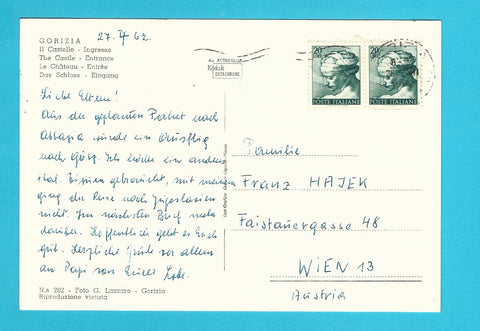 GORIZIA
Il Castello - Ingresso
The Castle - Entrance
Le Château - Entrée
Das Schloss - Eingang
27. IV 62.
Liebe Eltern!
Aus der geplanten Fahrt nach
Abbazia wurde ein Ausflug
nach Görz. Ich hätte ein anderes
ital. Visum gebraucht, mit meinem
ging die Reise nach Jugoslawien
nicht. Im nächsten Brief mehr
darüber. Hoffentlich geht es Euch
gut. Herzliche Grüße vor allem
an Papi von Eurer
N.o 202 - Foto G. Lazzaro - Gorizia
Riproduzione vietata
su FOTOCOLOR
Kodak
EKTACHROME
20
POSTE ITALIANE
20
POSTE ITALIANE
Familie
Franz HAJEK
Faistauergasse 48
WIEN 13
Austria